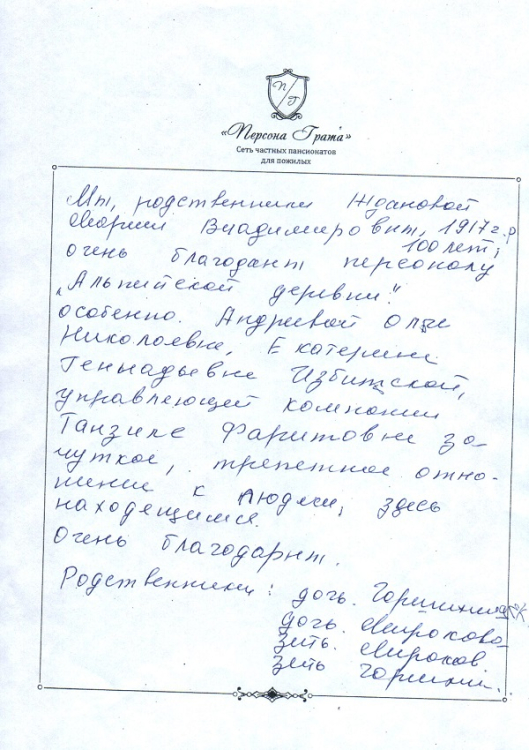 П/Г
«Персона Грата»
Сеть частных пансионатов
для пожилых
Мы, родственники Ждановой
Марии Владимировны, 1917 г.р
100 лет,
очень благодарны персоналу
„Альпийской деревни".
особенно. Андреевой Ольге
Николаевне, Екатерине
Геннадьевне Избитской,
управляющей компании
Танзиле Фаритовне за
чуткое, трепетное отно-
шение к людям, здесь
находящимся.
Очень благодарны.
Родственники: дочь.
дочь. Мирохова
зять. Мирохов.
зять